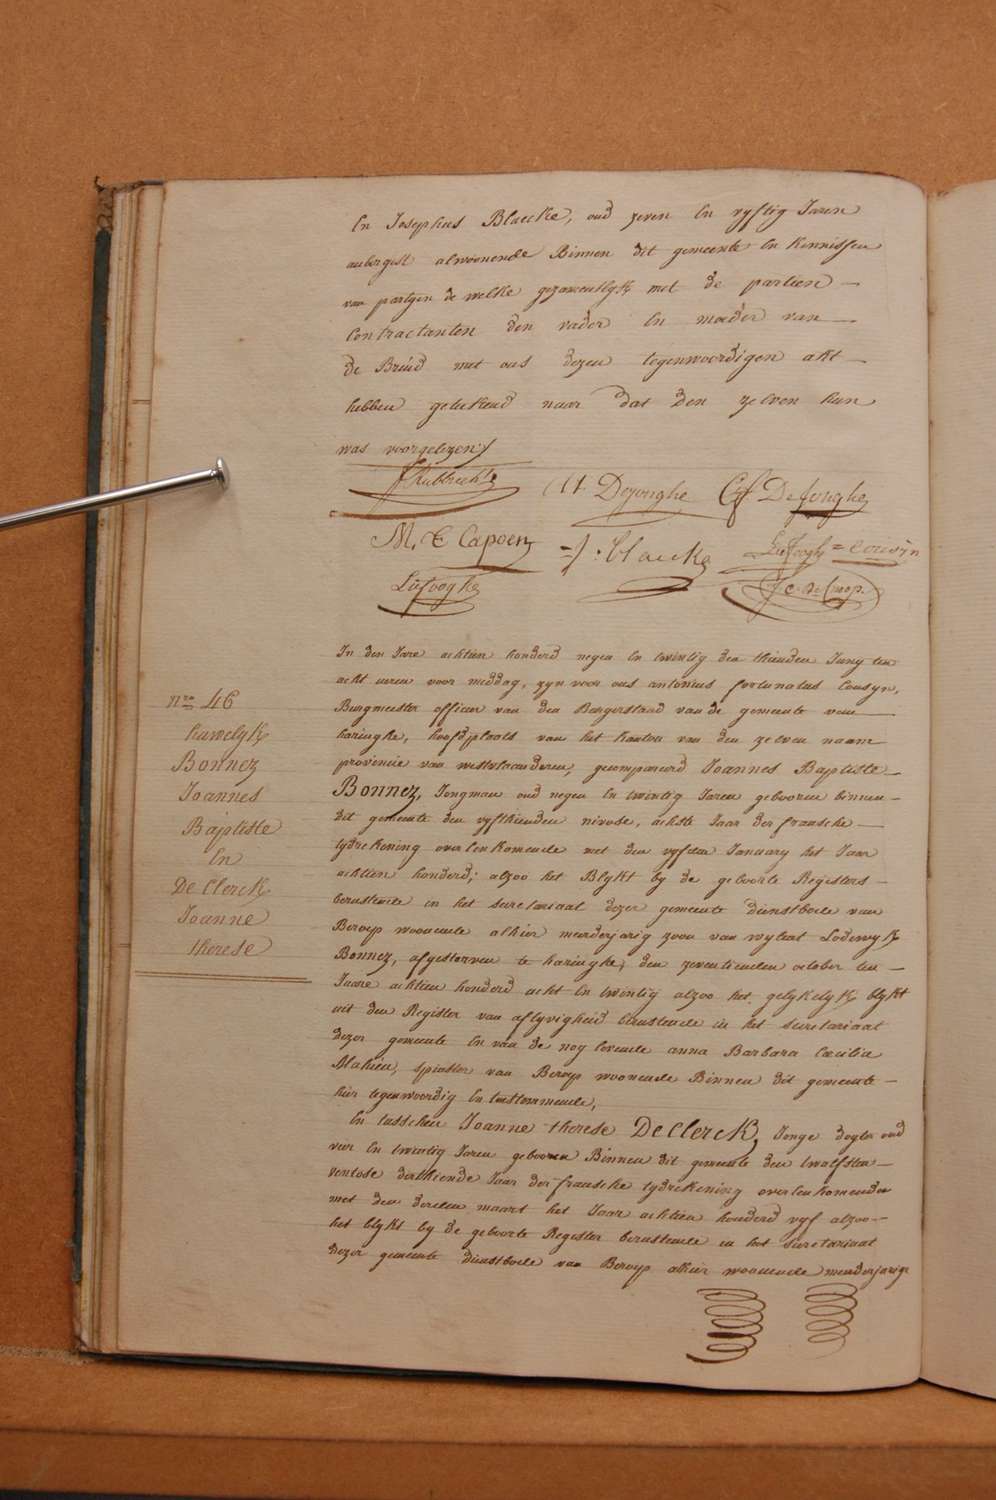 En Josephus Blaecke, oud zeven En vyftig Jaren
aubergist alwoonende Binnen dit gemeente En kennissen
van partyen de welke gezamentlyk met de partien
Contractanten den vader En moeder van
de Bruid met ons dezen tegenwoordigen akt
hebben geteekend naar dat den zelven hun
was voorgelezen
J Rubbrecht
M Dejonghe C f. DeJonghe
M. C Capoen J: Claeke Liefooghe = Cousijn
Liefooghe J C. De Croop.
In den Jare achtien honderd negen En twintig den thienden Juny ten
acht uren voor middag, zyn voor ons antonius fortunatus Cousyn,
Burgmeester officier van den Burgerstand van de gemeente van
haringhe, hoofdplaats van het kanton van den zelven naam
provincie van westvlaanderen, gecompareerd Joannes Baptiste
Bonnez, Jongman oud negen En twintig Jaren gebooren binnen
dit gemeente den vyfthienden nivose, achste Jaar der fransche
tydrekening overeenkomende met den vyfden January het Jaar
achtien honderd; alzoo het Blykt by de geboorte Registers
berustende in het secretariaat dezer gemeente dienstbode van
Beroep woonende alhier meerderjarig zoon van wylent Lodewyk
Bonnez, afgestorven te haringhe, den zeventienden october ten
Jaare achtien honderd acht En twintig alzoo het gelykelyk blykt
uit den Register van aflyvigheid berustende in het secretariaat
dezer gemeente En van de nog levende anna Barbara Cæcilia
Mahieu, spinster van Beroep woonende Binnen dit gemeente
hier tegenwoordig En toestemmende,
En tusschen Joanne therese DeClerck, Jonge dogter oud
vier En twintig Jaren gebooren Binnen dit gemeente den twalfsten
ventose derthiende Jaar der fransche tydrekening overeenkomende
met den derden maart het Jaar achtien honderd vyf alzoo
het blykt by de geboorte Register berustende in het secretariaat
dezer gemeente dienstbode van Beroep alhier woonende meerderjarige
nro 46
huwelyk
Bonnez
Joannes
Baptiste
En
De Clerck
Joanne
therese